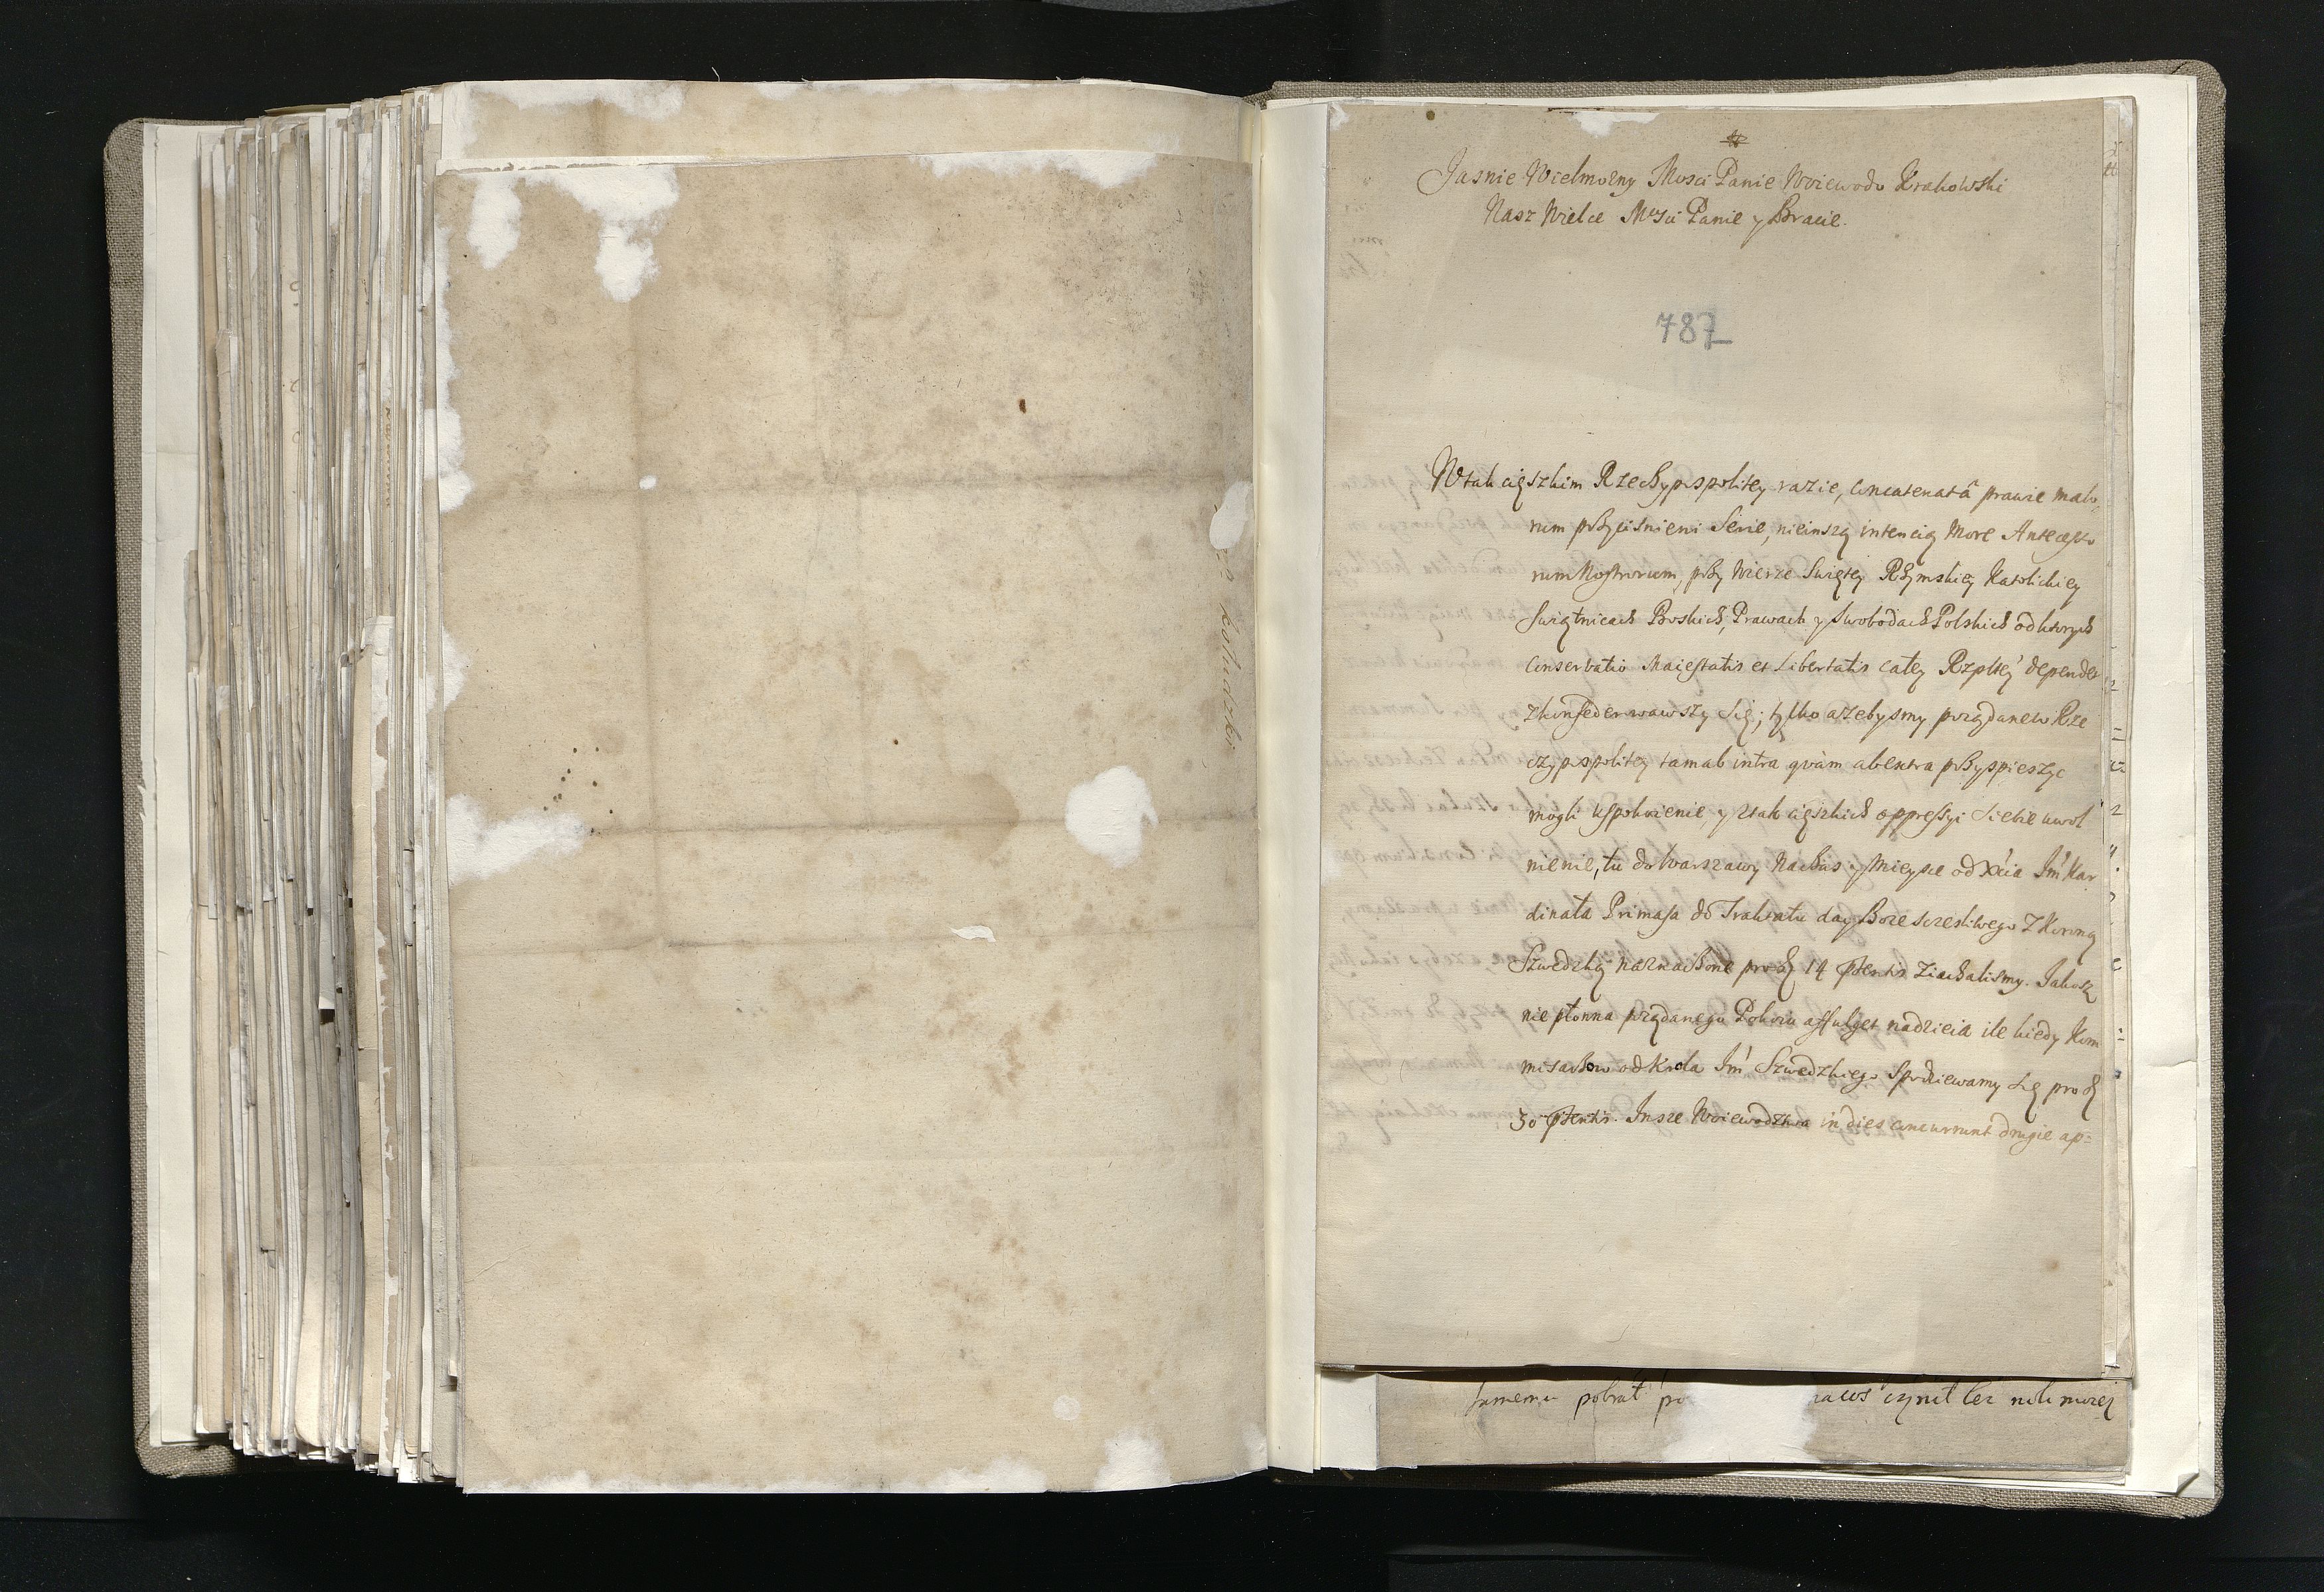 Jasnie Wielmozny Mosci Panie Woiewodo Krakowski
Nasz Wielce Mcsci Panie y Bracie.
787
W tak cięszkim Rzeczypospolitey razie, concatenatâ prawie malo
rum przyciśnieni Serie, nieinszą intencią more Antecesso
rum Nostrorum, przy Wierze Swiętey Rzymskiey Katolickiey
Swiątnicach Boskich, Prawach y Swobodach Polskich od ktorych
Conservatio Maiestatis et Libertatis całey Rzpltey dependet
zkonfederowawszy Się; tylko azebysmy pożądane w Rze
czypospolitey tam ab intra quàm ab extra przyspieszyc
mogli uspokoienie, y z tak cięszkich oppressyi Siebie uwol
nienie, tu do Warszawy na czas y Mieysce od Xcia Jm Kar
dinała Primasa do Traktatu day Boze szczesliwego Z Koroną
Szwedzką naznaczone pro 14 Praesentis Ziachalismy. Jakosz
nie płonna pożądanego Pokoiu affulget nadzieia ile kiedy Kom
misarzow od Krola Jm Szwedzkiego Spodziewamy Się pro
30 Praesentis. Insze Woiewodztwa in dies concurrunt drugie ap=
samemu pobrał czynił